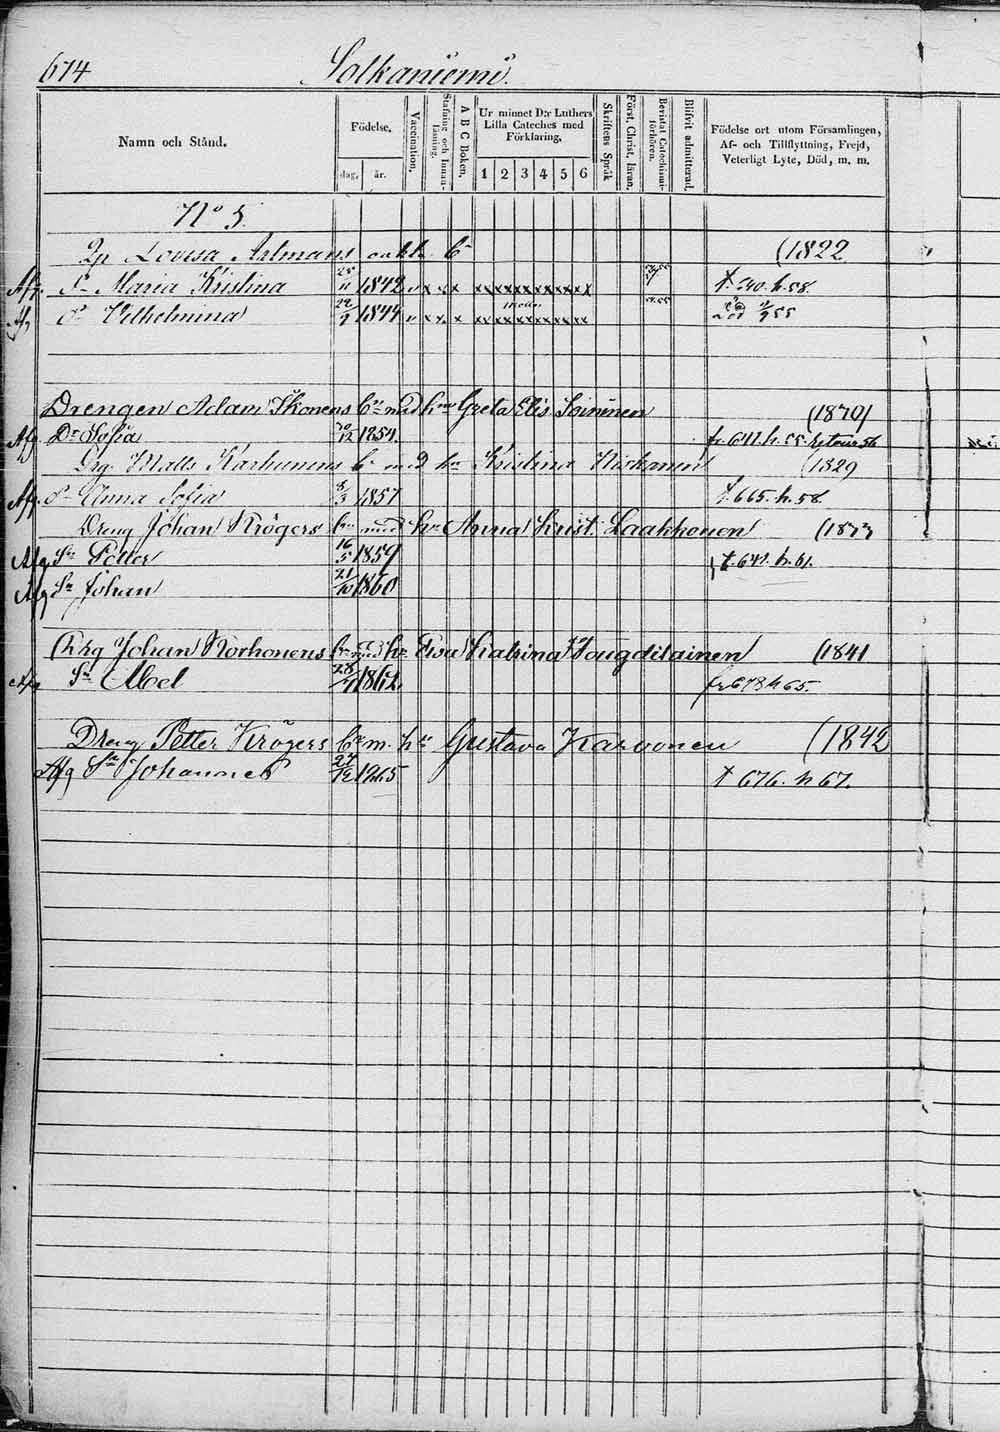 674 Solkaniemi.
Namn och Stånd.
Födelse.
dag. år.
Vaccination.
Stafning och Innanläsning.
A B C Boken.
Ur minnet D:r Luthers
Lilla Cateches med
Förklaring.
1 2 3 4 5 6
Skriftens Språk
Först. Christ. läran.
Bevistat Catechismiförhören.
Blifvit admitterad.
Födelse ort utom Församlingen,
Af- och Tillflyttning, Frejd,
Veterligt Lyte, Död, m. m.
No 5.
Lovisa Artmans oäkta bn (1822
Maria Kristina 25/11 1842 x x x x x x x x x x x x x x h. 58.
Vilhelmina 22/9 1844 x x x x x x x x x x x x x död 55
Drengen Adam Ikonens bn med hu Greta Elis Soininen (1870)
Afg. Dr Sofia 1854. fr 611. h. 55. retour 56
Drg. Matts Karhunens bn med hu Kristina Niskanen (1829
Afg. Anna Sofia 8/3 1857 t. 665. h. 58.
Dreng Johan Krögers bn med hu Anna Krist. Laakkonen
Afg Sn Petter 16/5 1859 t. 641. h. 61.
Afg Sn Johan 21/10 1860
Johan Korhonens bn med hu Eva Katrina (1841
Afg Sn Abel 1862 fr 678 h 65.
Dreng Petter Krögers bn m. hu Gustava Karvonen (1842
Afg Sn Johannes 27/12 1865 t 676. h 67.